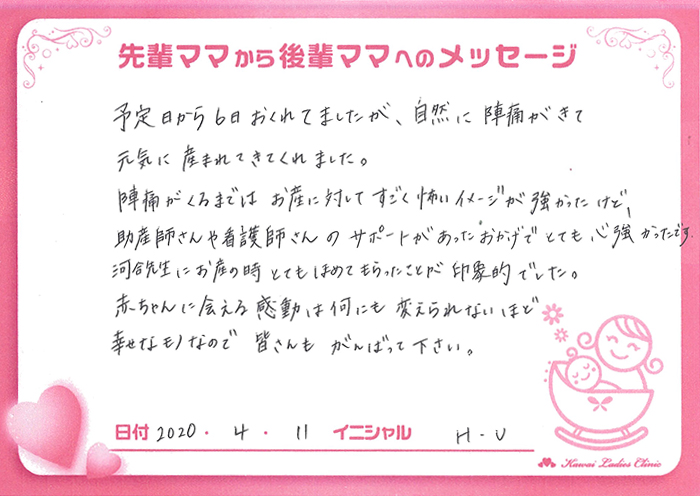 先輩ママから後輩ママへのメッセージ
予定日から6日おくれてましたが、自然に陣痛がきて
元気に産まれてきてくれました。
陣痛がくるまでは お産に対して すごく怖いイメージが強かったけど、
助産師さんや看護師さんの サポートがあったおかげで とても心強かったです。
河合先生にお産の時とてもほめてもらったことが印象的でした。
赤ちゃんに会える感動は何にも変えられないほど
幸せなモノなので 皆さんも がんばって下さい。
日付 2020・4・11 イニシャル H-U
Kawai Ladies Clinic